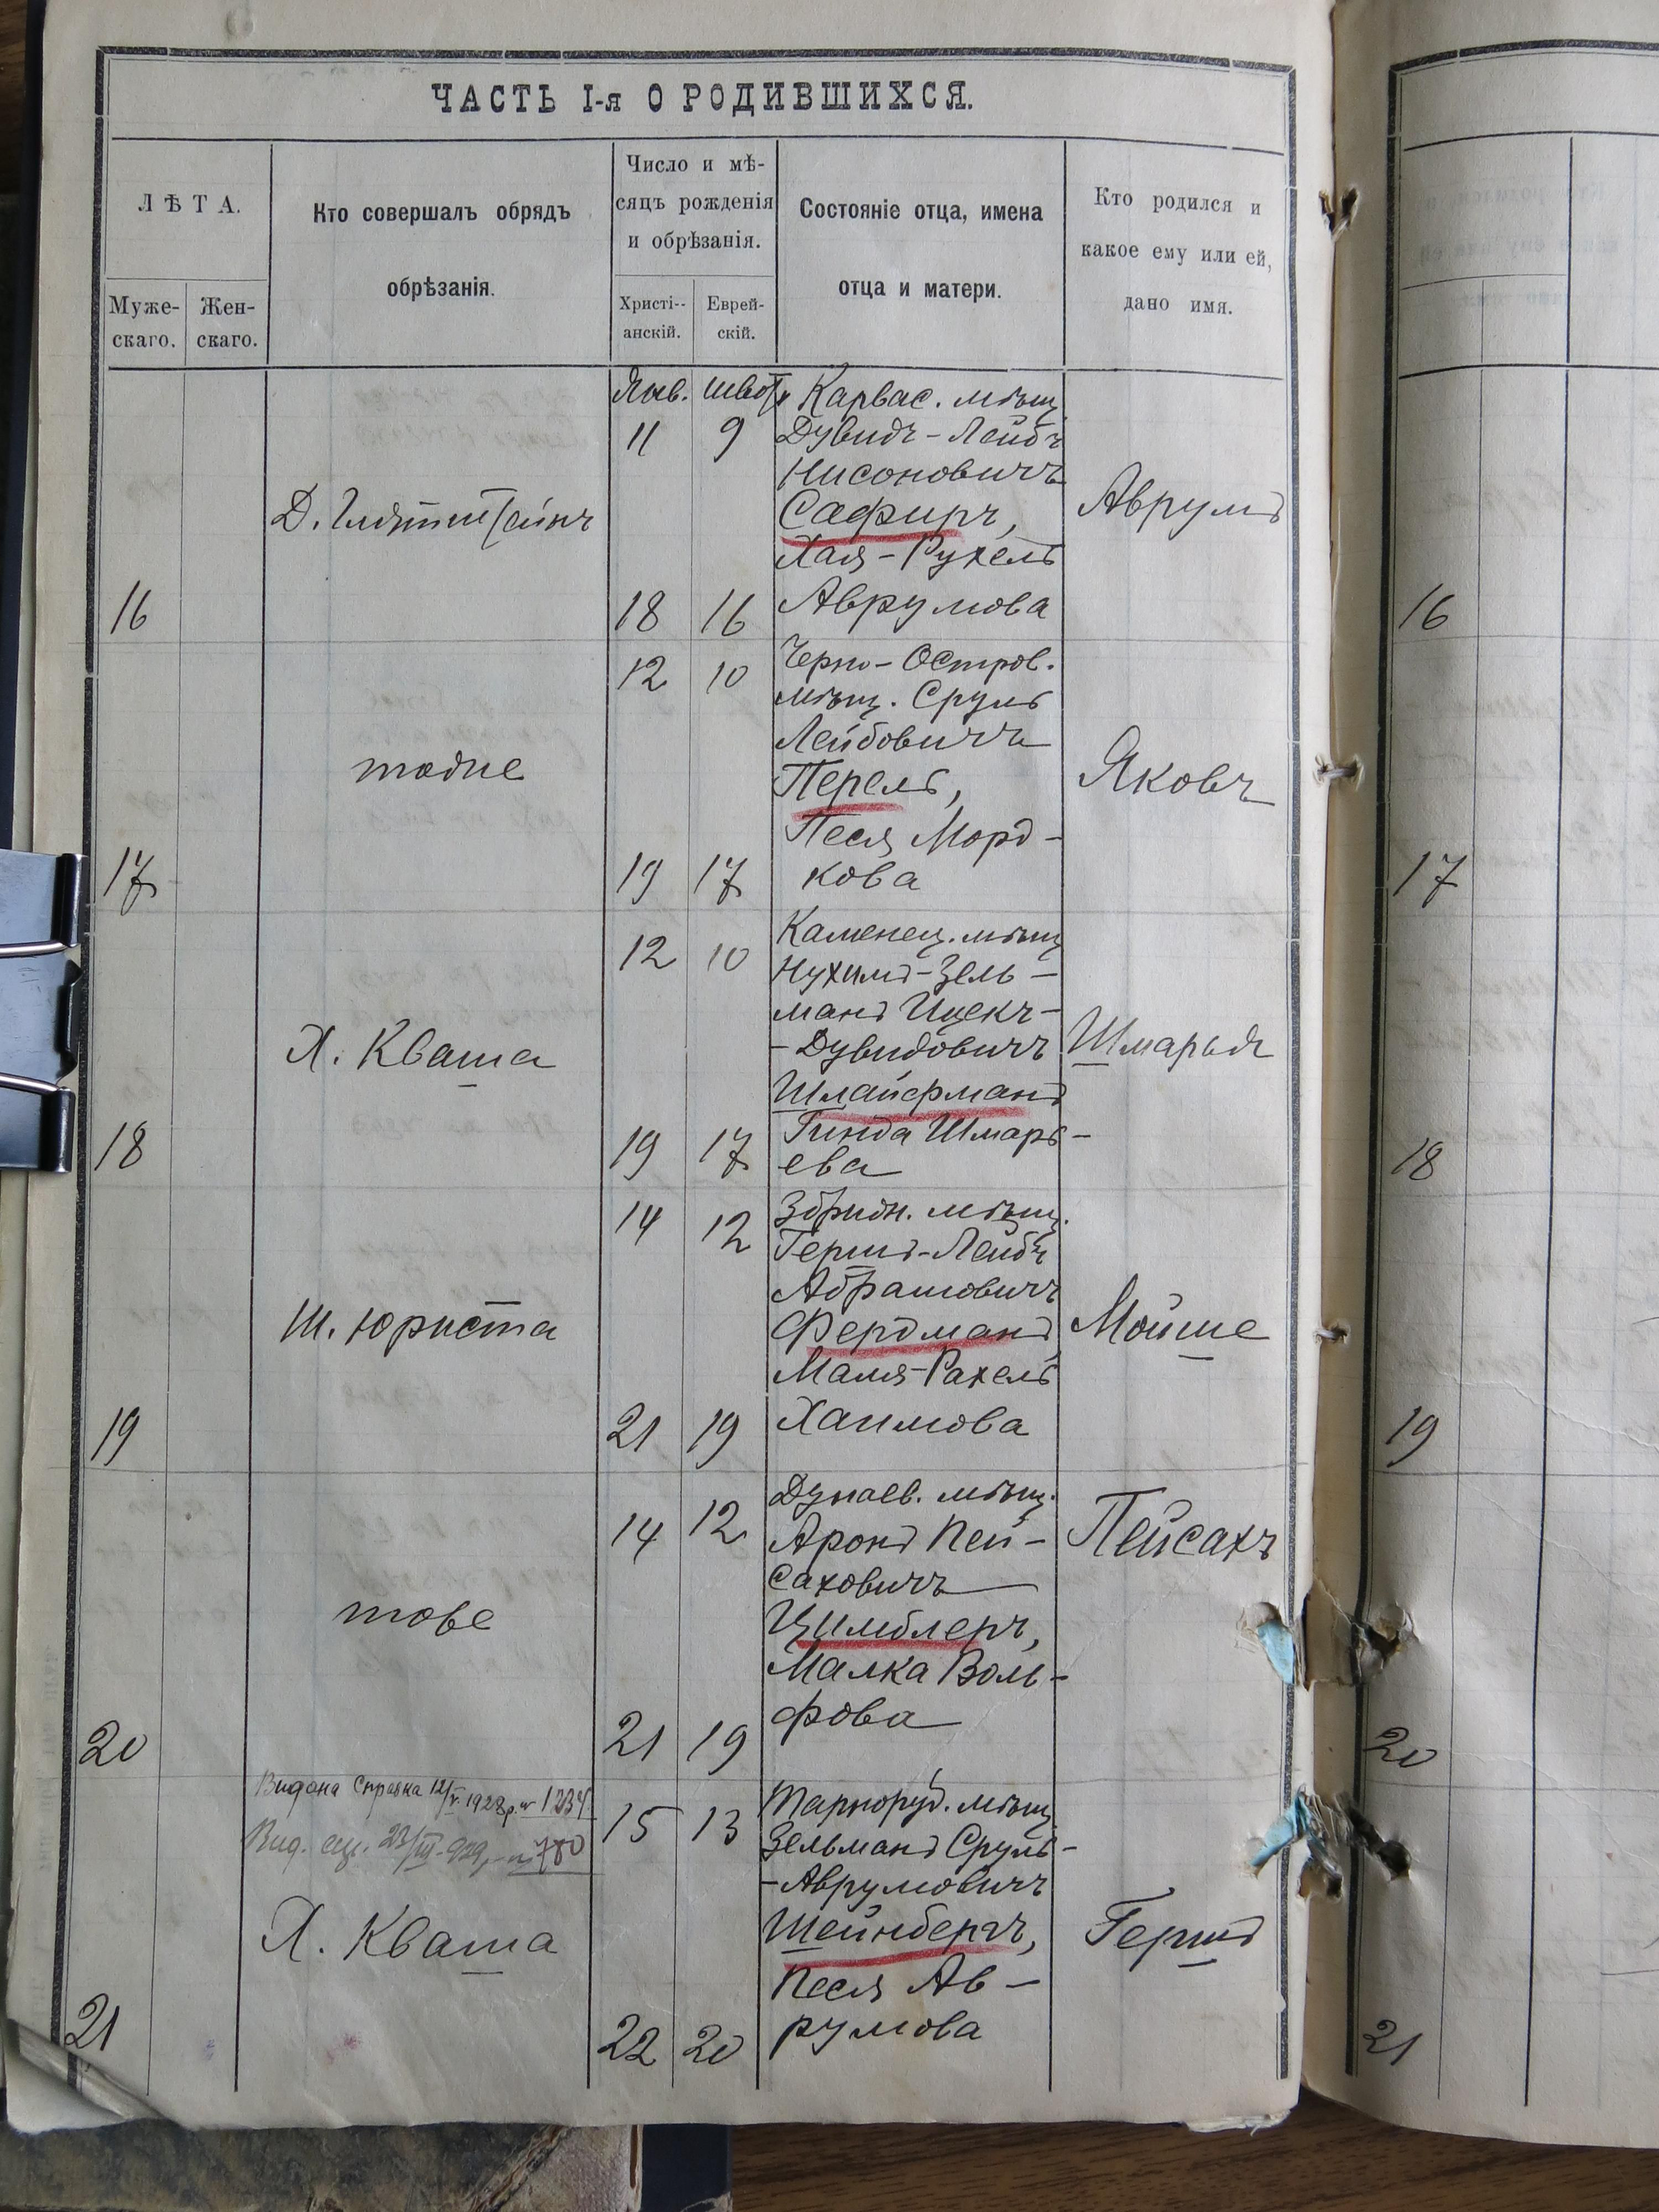 ЧАСТЬ I-я О РОДИВШИХСЯ.
ЛѢТА.
Муже-
скаго.
Жен-
скаго.
Кто совершалъ обрядъ
обрѣзанія.
Число и мѣ-
сяцъ рожденія
и обрѣзанія.
Христі-
анскій.
Еврей-
скій.
Состояніе отца, имена
отца и матери.
Кто родился и
какое ему или ей,
дано имя.
Янв.
11
9
Карвас. мѣщ.
Дувидъ-Лейбъ
Нисоновичъ
Сафиръ,
Хая-Рухель
Аврумова
Д.
Аврумъ
16
18
16
12
10
Черно-Остров.
мѣщ. Сруль
Лейбовичъ
Перель,
Песя Морд-
кова
тоже
Яковъ
17
19
17
12
10
Каменец. мѣщ
Нухимъ-Зель-
манъ Ицекъ-
-Дувидовичъ
Шлайфманъ
Гинда Шмарь-
ева
Х. Кваша
Шмарья
18
19
17
14
12
Збриж. мѣщ.
Гершъ-Лейбъ
Абрамовичъ
Фердманъ
Маля-Рахель
Хаимова
Ш. Юриста
Мойше
19
21
19
14
12
Дунаев. мѣщ.
Аронъ Пей-
саховичъ
Цимблеръ,
Малка Воль-
фова
тоже
Пейсахъ
20
21
19
Видана Справка 12/V. 1928р. № 1234
Вид. 23/III-929, № 780
15
13
Тарноруд. мѣщ
Зельманъ Сруль-
-Аврумовичъ
Шейнбергъ,
Песя Ав-
румова
Х. Кваша
Гершъ
21
22
20
16
17
18
19
20
21